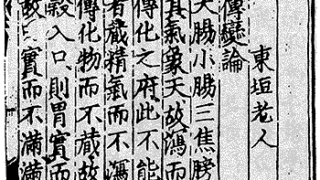 東垣老人
傳變論
大腸小腸三焦膀
其氣象天故瀉而
傳化之府此不能
者藏精氣而不瀉
傳化物而不藏故
穀入口則胃實而
故曰實而不滿滿